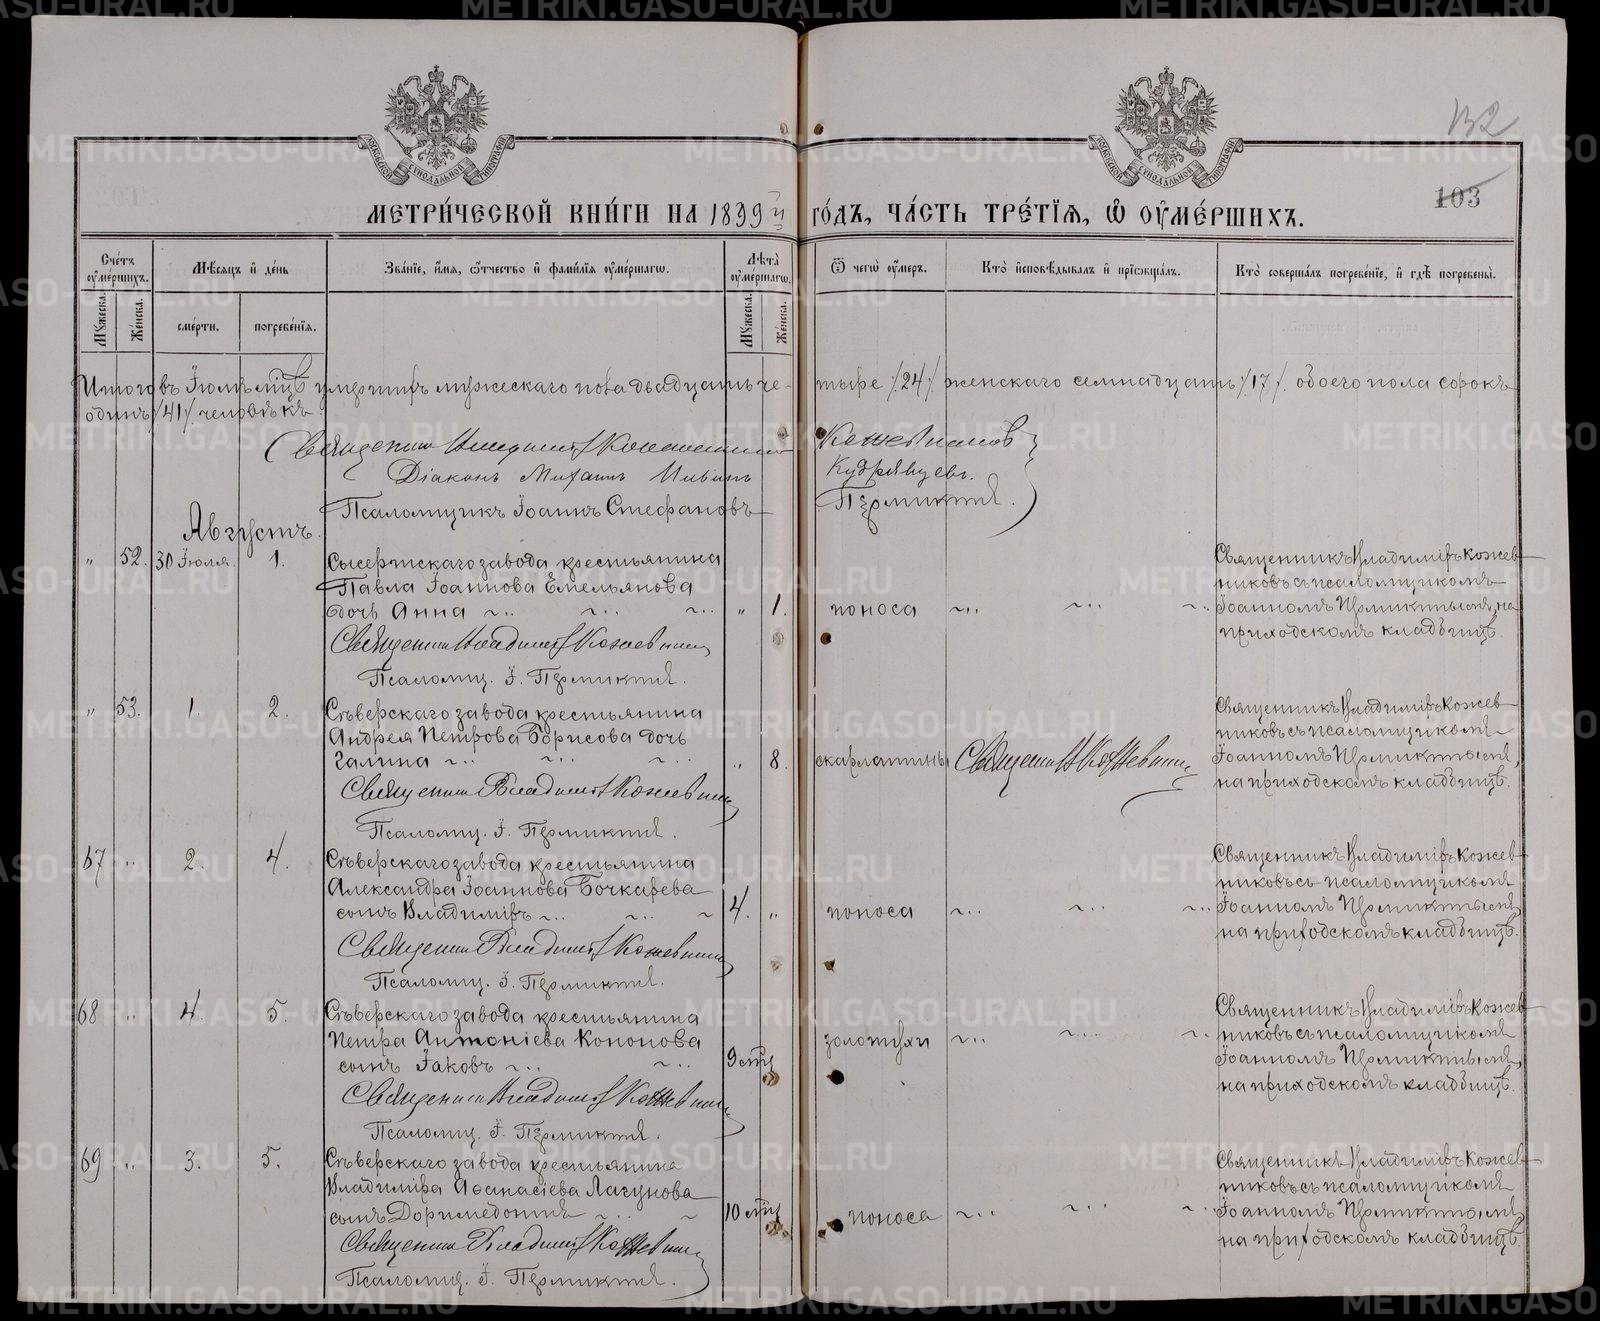 132
103
МЕТРИ́ЧЕСКОЙ КНИ́ГИ НА 1899й ГО́ДЪ, ЧА́СТЬ ТРЕ́ТІЯ, Ѿ ОУМЕ́РШИХЪ.
Счетъ оумершихъ.
Мѣсяцъ и день
Званіе, имя, отчество и фамилія оумершагѡ.
Лѣта оумершагѡ.
Ѿ чегѡ оумеръ.
Кто исповѣдывалъ и пріѡбщалъ.
Кто совершалъ погребеніе, и гдѣ погребены.
Мужеска.
Женска.
смерти.
погребенія.
Мужеска.
Женска.
Итого въ Іюлѣ мцѣ умершихъ мужескаго пола двадцать че-тыре /.24/. женскаго семнадцать /.17/. обоего пола сорокъ
одинъ /.41/. человѣкъ
Священникъ Владиміръ Кожевниковъ
Діаконъ Михаилъ Кудрявцевъ.
Псаломщикъ Іоаннъ Стефановъ
Августъ.
" 52. 30 Іюля. 1. Сысертскаго завода крестьянина
Павла Іоаннова Емельянова
дочь Анна " 1. поноса
Священникъ Владиміръ Кожевниковъ
Псаломщ. І. Пермикинъ.
Священникъ Владиміръ Кожев-
никовъ съ псаломщикомъ
Іоанномъ Пермикинымъ, на
приходскомъ кладбищѣ.
" 53. 1. 2. Сѣверскаго завода крестьянина
Андрея Петрова Борисова дочь
Галина " 8. скарлатины Священникъ В. Кожевниковъ
Священникъ Владиміръ Кожевниковъ
Псаломщ. І. Пермикинъ.
Священникъ Владиміръ Кожев-
никовъ съ псаломщикомъ
Іоанномъ Пермикинымъ,
на приходскомъ кладбищѣ.
67 " 2. 4. Сѣверскаго завода крестьянина
Александра Іоаннова Бочкарева
сынъ Владиміръ 4. " поноса
Священникъ Владиміръ Кожевниковъ
Псаломщ. І. Пермикинъ.
Священникъ Владиміръ Кожев-
никовъ съ псаломщикомъ
Іоанномъ Пермикинымъ,
на приходскомъ кладбищѣ.
68 " 4. 5. Сѣверскаго завода крестьянина
Петра Антоніева Кононова
сынъ Іаковъ 9 мѣц золотухи
Священникъ Владиміръ Кожевниковъ
Псаломщ. І. Пермикинъ.
Священникъ Владиміръ Кожев-
никовъ съ псаломщикомъ
Іоанномъ Пермикинымъ,
на приходскомъ кладбищѣ.
69 " 3. 5. Сѣверскаго завода крестьянина
Владиміра Аѳанасіева Лагунова
сынъ Доримедонтъ 10 мѣц поноса
Священникъ Владиміръ Кожевниковъ
Псаломщ. І. Пермикинъ.
Священникъ Владиміръ Кожев-
никовъ съ псаломщикомъ
Іоанномъ Пермикинымъ,
на приходскомъ кладбищѣ.
METRIKI.GASO-URAL.RU